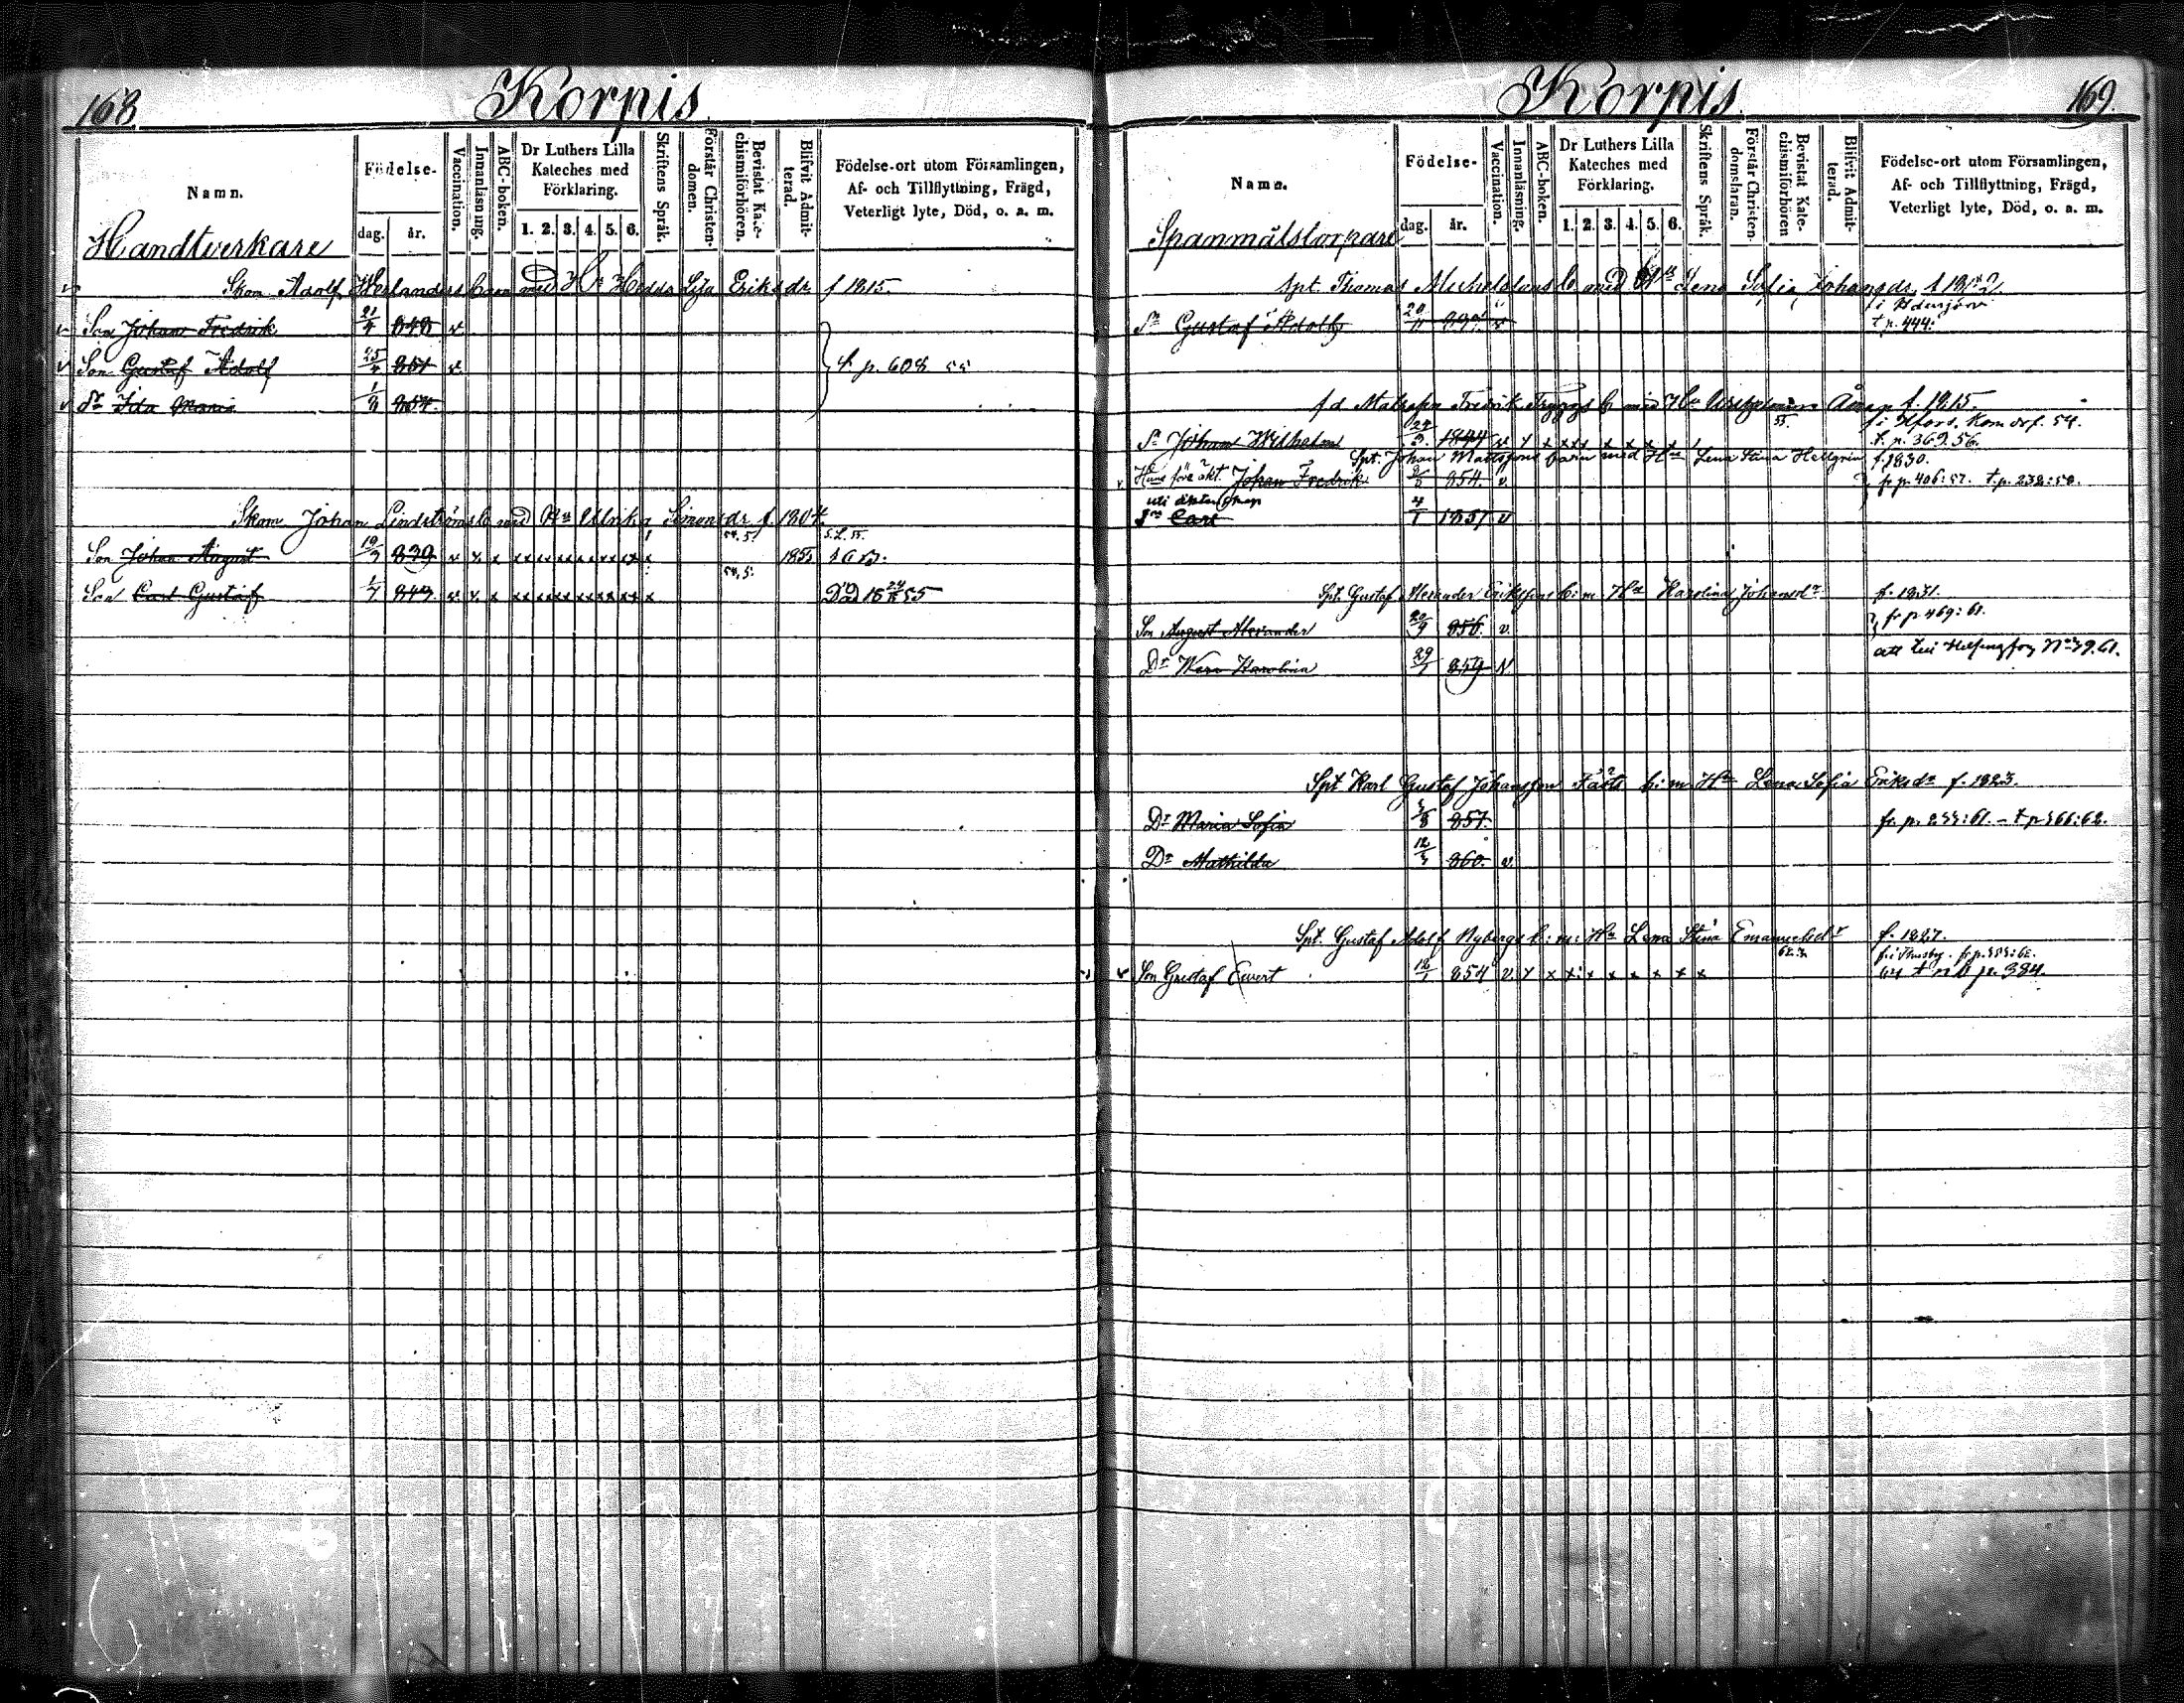 168.
Korpis.
Namn.
Födelse-
dag.
år.
Vaccination.
Innanläsning.
ABC-boken.
Dr Luthers Lilla
Kateches med
Förklaring.
1. 2. 3. 4. 5. 6.
Skriftens Språk.
Förstår Christen-
domen.
Bevistat Kate-
chismiförhören.
Blifvit Admit-
terad.
Födelse-ort utom Församlingen,
Af- och Tillflyttning, Frägd,
Veterligt lyte, Död, o. a. m.
Handtverkare
Skom. Adolf Herlanders barn med Hu Hedda Lisa Eriksdr f 1815.
Son Johan Fredrik 21/4 848 v
Son Gustaf Adolf 25/4 851 v
t. p. 608 55
dr Ida Maria 1/11 854.
Skom Johan Lindströms b med Hu Ulrika Simonsdr f 1804.
54.5.
Son Johan August 19/9 839 v x x x x x x x x x 1855
54.5.
Son Carl Gustaf 1/7 843. v x x x x x x x x x
Död 16 24/8 55
Korpis.
169.
Namn.
Födelse-
dag.
år.
Vaccination.
Innanläsning.
ABC-boken.
Dr Luthers Lilla
Kateches med
Förklaring.
1. 2. 3. 4. 5. 6.
Skriftens Språk.
Förstår Christen-
domsläran.
Bevistat Kate-
chismiförhören
Blifvit Admit-
terad.
Födelse-ort utom Församlingen,
Af- och Tillflyttning, Frägd,
Veterligt lyte, Död, o. a. m.
Spanmålstorpare
Spt. Thomas Michelssons b med Lena Sofia Johansdr. f
t p. 444.
Sn Gustaf Adolf 20/11
f d Matrosen Fredrik Tryggs b med Hu f. 1815.
55.
f i Hfors. Kom 54.
Sn Johan Wilhelm 24/3 1844 v x x x x x x x x x
t. p. 369. 56.
Spt. Johan Mattssons barn med Hu Lena Stina Hellgren f. 1830.
Hans före äkt. Johan Fredrik 854. v.
fr p. 406: 57. t. p. 232: 58.
uti äktenskap
Sn Carl 4/1 1857 v
Spt. Gustaf Alexander Erikssons b: m Hu Karolina Johansdr f. 1831.
Son August Alexander 20/9 856. v.
fr p 469: 61.
Dr Karolina 29/1 859. v.
att till Helsingfors No 39. 61.
Spt Karl Gustaf Johansson b: m Hu Lena Sofia Eriksdr f. 1823.
Dr Maria Sofia 857.
Dr Mathilda 860. v.
Spt. Gustaf Adolf Nybergs b: m: Hu Lena Stina Emanuelsdr f. 1827.
Son Gustaf Ewert 854 v. x x x x x x x x x
p. 384.